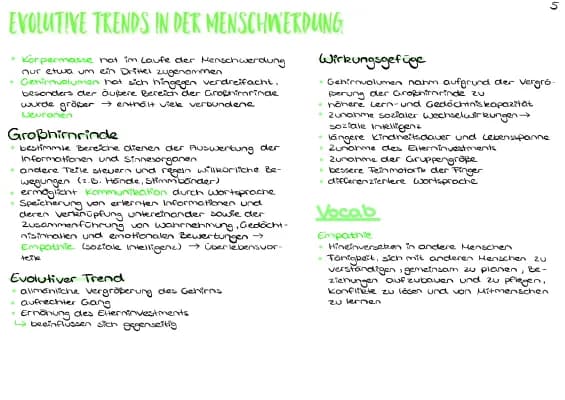 5
EVOLUTIVE TRENDS IN DER MENSCHWERDUNG
• Körpermasse hat im Laufe der Menschwerdung
nur etwa um ein Drittel zugenommen
• Gehirnvolumen hat sich hingegen verdreifacht,
besonders der äußere Bereich der Großhirnrinde
wurde größer → enthält viele verbundene
Neuronen
Großhirnrinde
• bestimmte Bereiche dienen der Auswertung der
Informationen und Sinnesorganen
• andere Teile steuern und regeln willkürliche Be-
wegungen (z.B. Hände, Stimmbänder)
• ermöglicht Kommunikation durch Wortsprache
• Speicherung von erlernten Informationen und
deren Verknüpfung untereinander sowie der
Zusammenführung von Wahrnehmung, Gedächt-
nisinhalten und emotionalen Bewertungen →
Empathie (soziale Intelligenz) → Überlebensvor-
teile
Evolutiver Trend
• allmähliche Vergrößerung des Gehirns
• aufrechter Gang
• Erhöhung des Elterninvestments
↳ beeinflussen sich gegenseitig
Wirkungsgefüge
• Gehirnvolumen nahm aufgrund der Vergrö-
ßerung der Großhirnrinde zu
• höhere Lern- und Gedächtniskapazität
• Zunahme sozialer Wechselwirkungen →
soziale Intelligenz
• längere Kindheitsdauer und Lebensspanne
• Zunahme des Elterninvestments
• Zunahme der Gruppengröße
• bessere Feinmotorik der Finger
• differenziertere Wortsprache
Vocab
Empathie
• Hineinversetzen in andere Menschen
• Fähigkeit, sich mit anderen Menschen zu
verständigen, gemeinsam zu planen, Be-
ziehungen aufzubauen und zu pflegen,
Konflikte zu lösen und von Mitmenschen
zu lernen